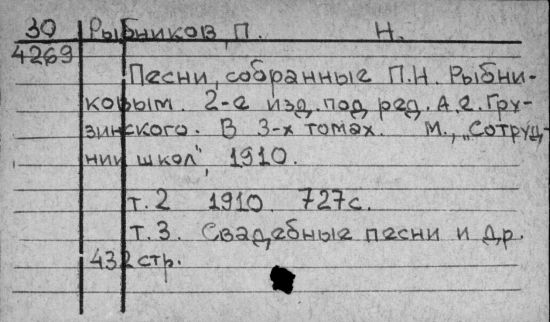 30 Рыбников, П. Н.
4269
Песни, собранные П.Н. Рыбни-
ковым. 2-е изд. под ред. А.Е. Гру-
зинского. В 3-х томах. М., „Сотруд-
ник школ", 1910.
т.2 1910. 727с.
т.3. Свадебные песни и др.
432 стр.